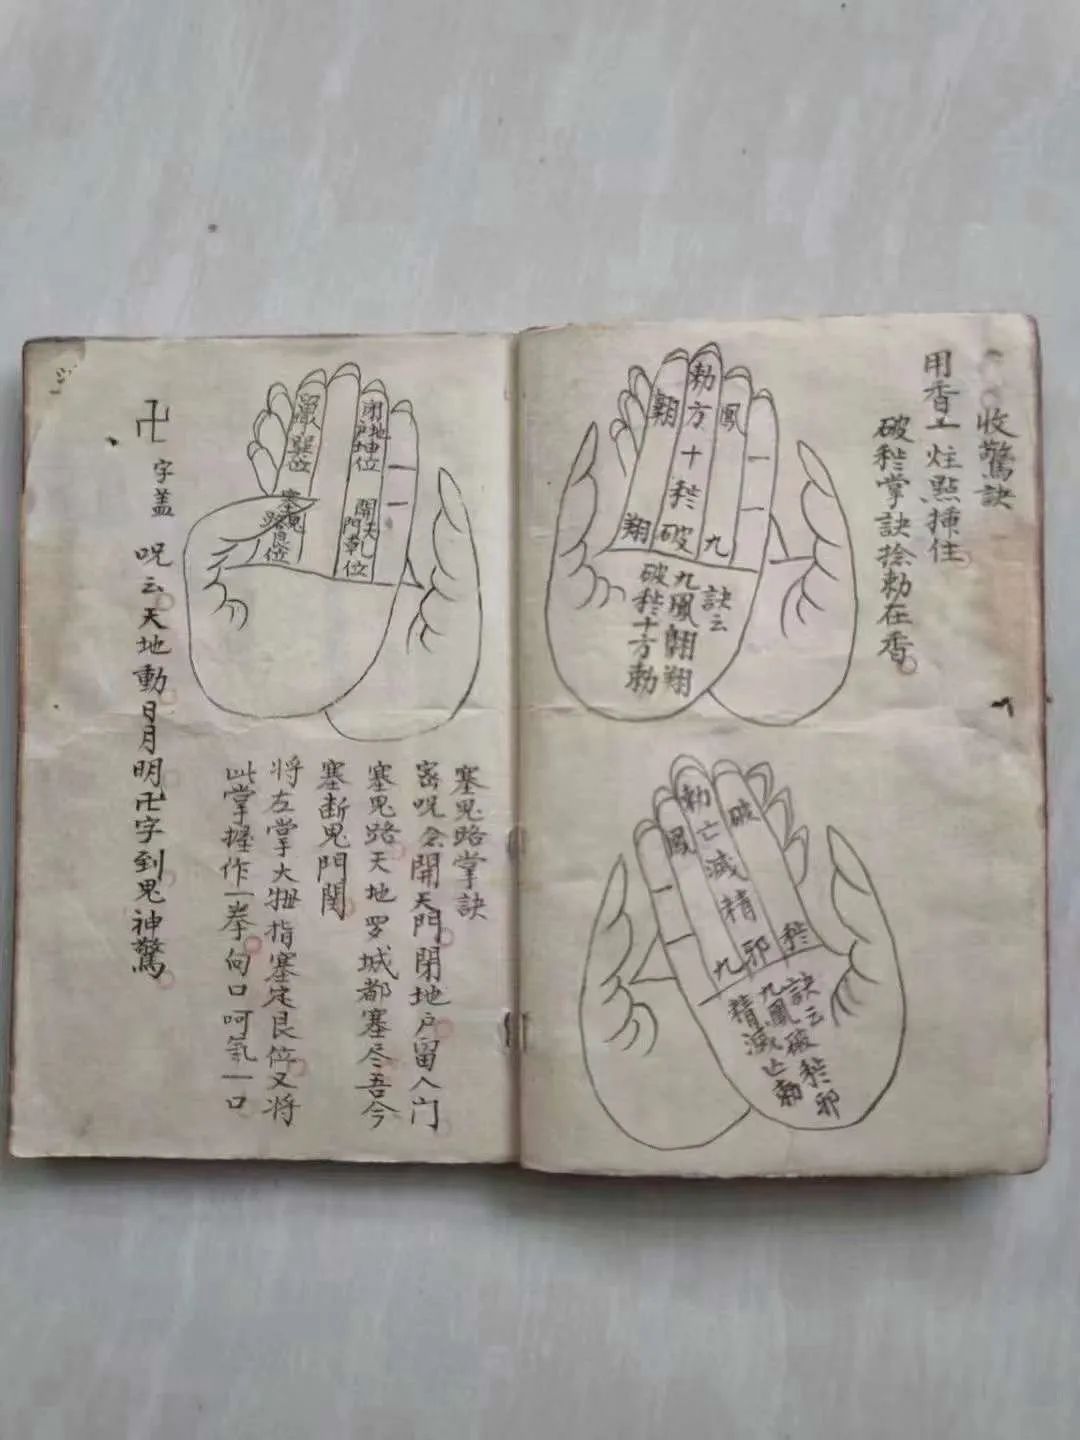 收驚訣
用香一炷點揷住
破秽掌訣捻勅在香
勅方十秽破
翱
翔
鳳
九
訣云
九鳳翱翔
破秽十方勅
勅亡滅精邪
破
秽
鳳
九
訣云破秽邪
九鳳滅亡勅
精
留人巽位
閉地户坤位
塞鬼路艮位
開天門乾位
塞鬼路掌訣
密呪念開天門閉地户留人门
塞鬼路天地罗城都塞尽吾今
塞断鬼門関
将左掌大拇指塞定艮位又将
此掌握作一拳向口呵氣一口
卍字盖 呪云天地動日月明卍字到鬼神驚